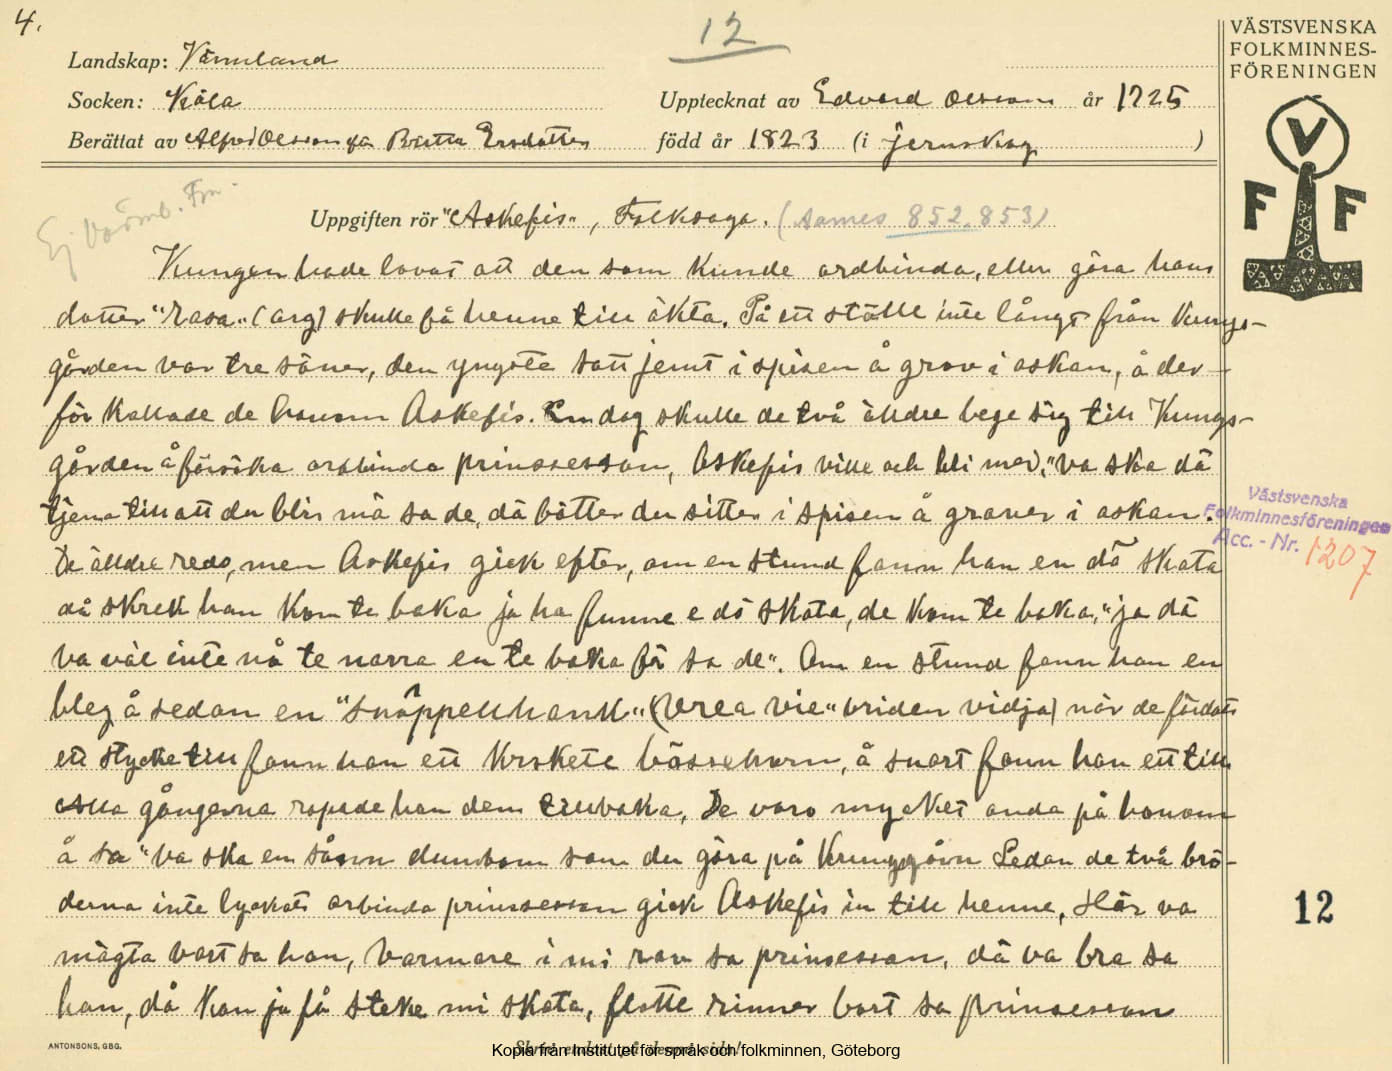 4.
12
VÄSTSVENSKA
FOLKMINNES-
FÖRENINGEN
Landskap: Värmland
Socken: Köla
Upptecknat av Edvard Olsson år 1925
Berättat av Alfred Olsson från Britta Ersdotter född år 1823 (i Jernskog)
V
F F
Ej Värmb. Frn.
Uppgiften rör "Askefis", Folksaga. (Aarnes 852. 853)
Kungen hade lovat att den som kunde ordbinda, eller göra hans
dotter "rasa" (arg) skulle få henne till äkta. På ett ställe inte långt från Kungs-
gården var tre söner, den yngste satt jemt i spisen å grov i askan, å der-
för kallade de honom Askefis. En dag skulle de två äldre bege sig till Kungs-
gården å försöka ordbinda prinsessan, Askefis ville och bli med, "va ska dä
tjena till att du blir mä sa de, dä bätter du sitter i spisen å graver i askan.
De älldre redo, men Askefis gick efter, om en stund fann han en dö skata
då skrek han kom te baka ja ha funne e dö skata, de kom te baka, "ja dä
va väl inte nå te narra en te baka för sa de". Om en stund fann han en
bleg å sedan en "snöppellhank" (vrea vie" vriden vidja) när de färdats
ett stycke till fann han ett krokete bössehorn, å snart fann han ett till
alla gångerna ropade han dem tillbaka, De voro mycket onda på honom
å sa "va ska en sånn dumbom som du göra på Kungsgårn Sedan de två brö-
derna inte lyckats orbinda prinsessan gick Askefis in till henne, Här va
mägta vart sa han, Varmare i mi rav sa prinsessan, dä va bra sa
han, då kan ja få steke mi skata, flotte rinner bort sa prinsessan
Västsvenska
Folkminnesföreningen
Acc. - Nr. 1207
12
ANTONSONS, GBG.
Skriv endast på denna sida!
Kopia från Institutet för språk och folkminnen, Göteborg